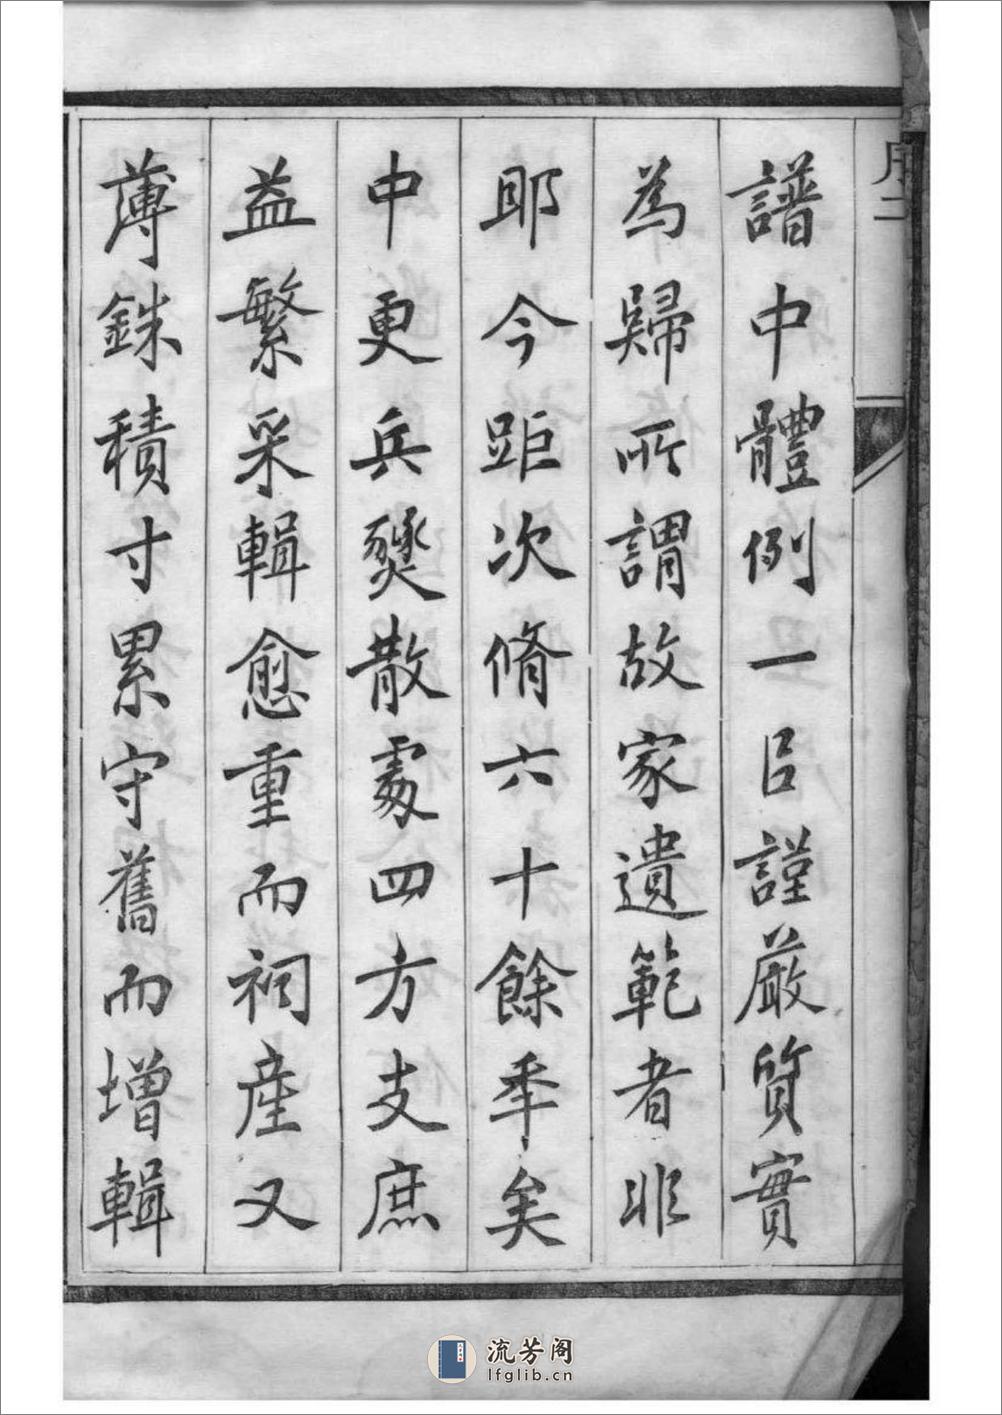 序二
譜中體例一㠯謹嚴質實
為歸所謂故家遺範者非
耶今距次脩六十餘秊矣
中更兵燹散處四方支庶
益繁采輯愈重而祠產又
薄銖積寸累守舊而增輯
流芳阁
lfglib.cn